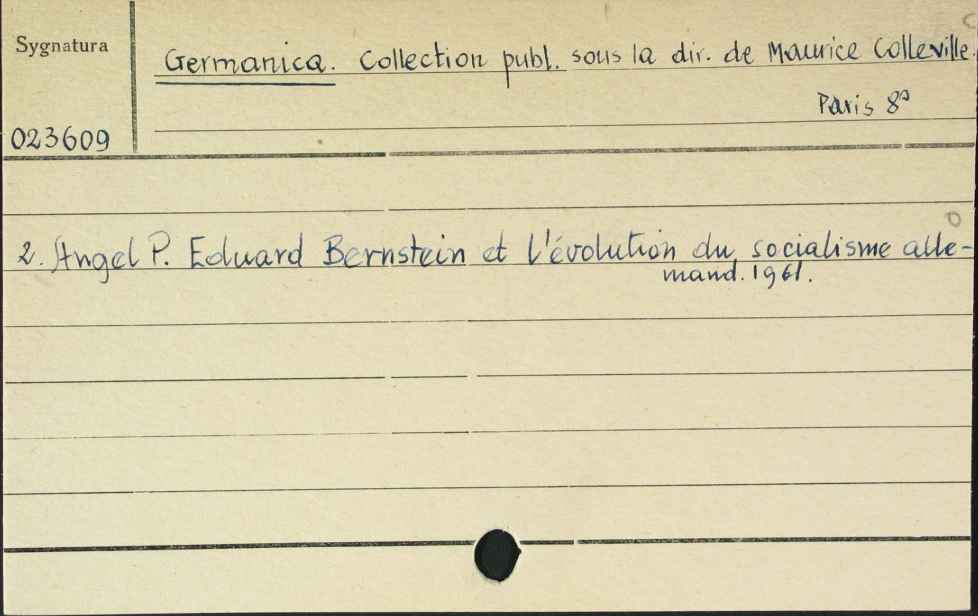 Sygnatura
Germanica. Collection publ. sous la dir. de Maurice Colleville.
Paris 8°
023609
2. Angel P. Eduard Bernstein et l'évolution du socialisme alle-
mand. 1961.